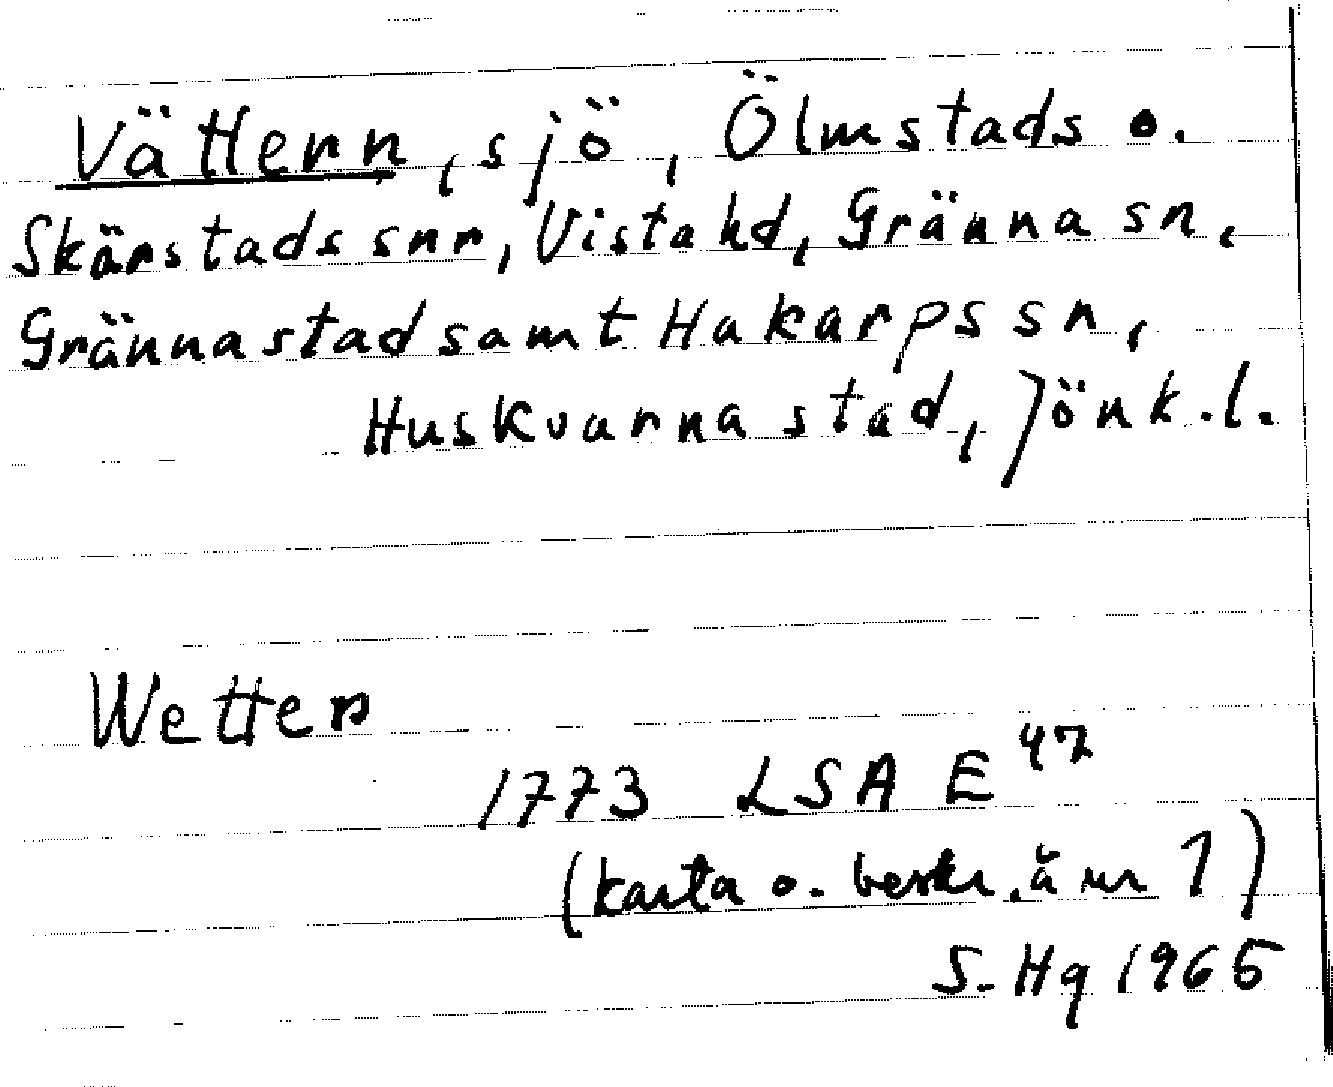 Vättern, sjö, Ölmstads o.
Skärstads snr, Vista hd, Gränna sn,
Gränna stad samt Hakarps sn,
Huskvarna stad, Jönk.l.
Wetter
1773 LSA E 47
(karta o. beskr. å nr 1)
S. Hg 1965